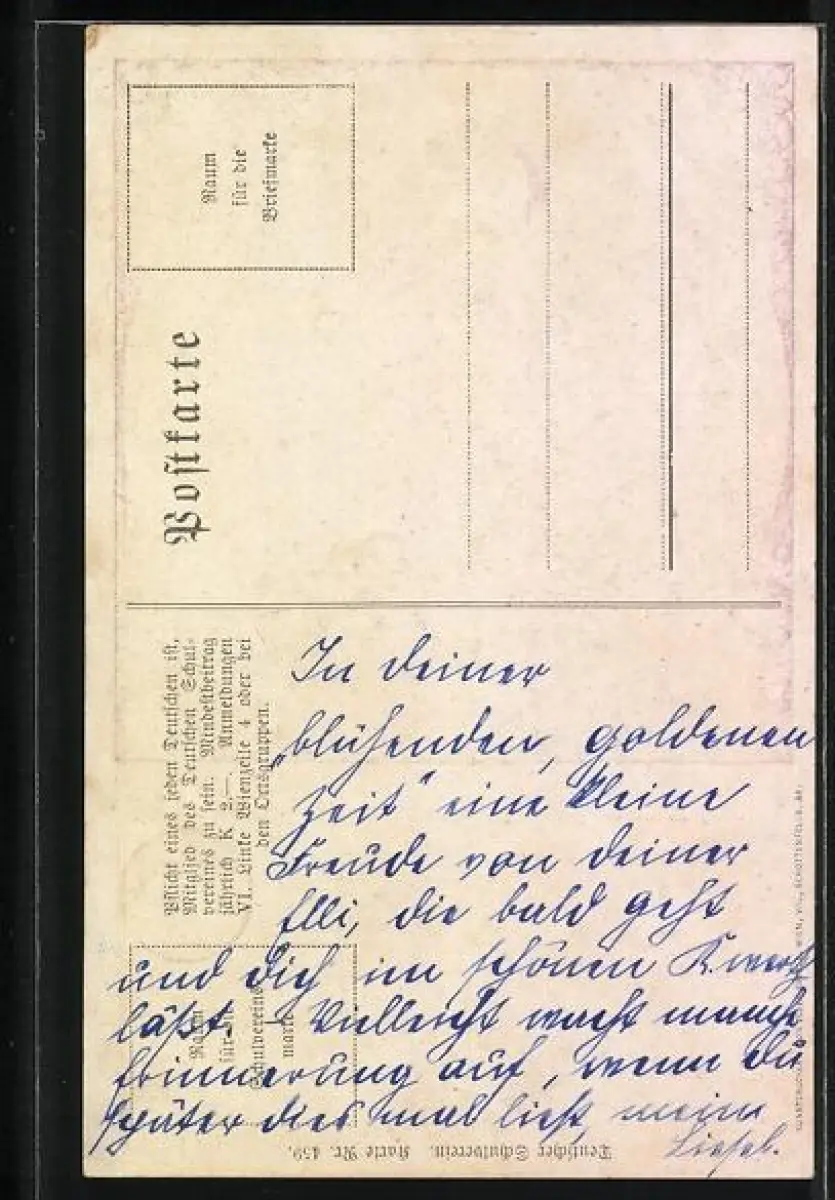 Raum
für die
Briefmarke
Postkarte
Pflicht eines jeden Deutschen ist,
Mitglied des Deutschen Schul-
vereines zu sein. Mindestbeitrag
jährlich K 2.—. Anmeldungen
VI. Linke Wienzeile 4 oder bei
den Ortsgruppen.
In deiner
„blühenden, goldenen
Zeit" eine kleine
Freude von deiner
Elli, die bald geht
und dich im schönen K.
läßt. Vielleicht wacht manche
Erinnerung auf, wenn du
später dies mal liest, mein
Liesel.
Raum
für die
Schulvereins
marke
Deutscher Schulverein. Karte Nr. 459.